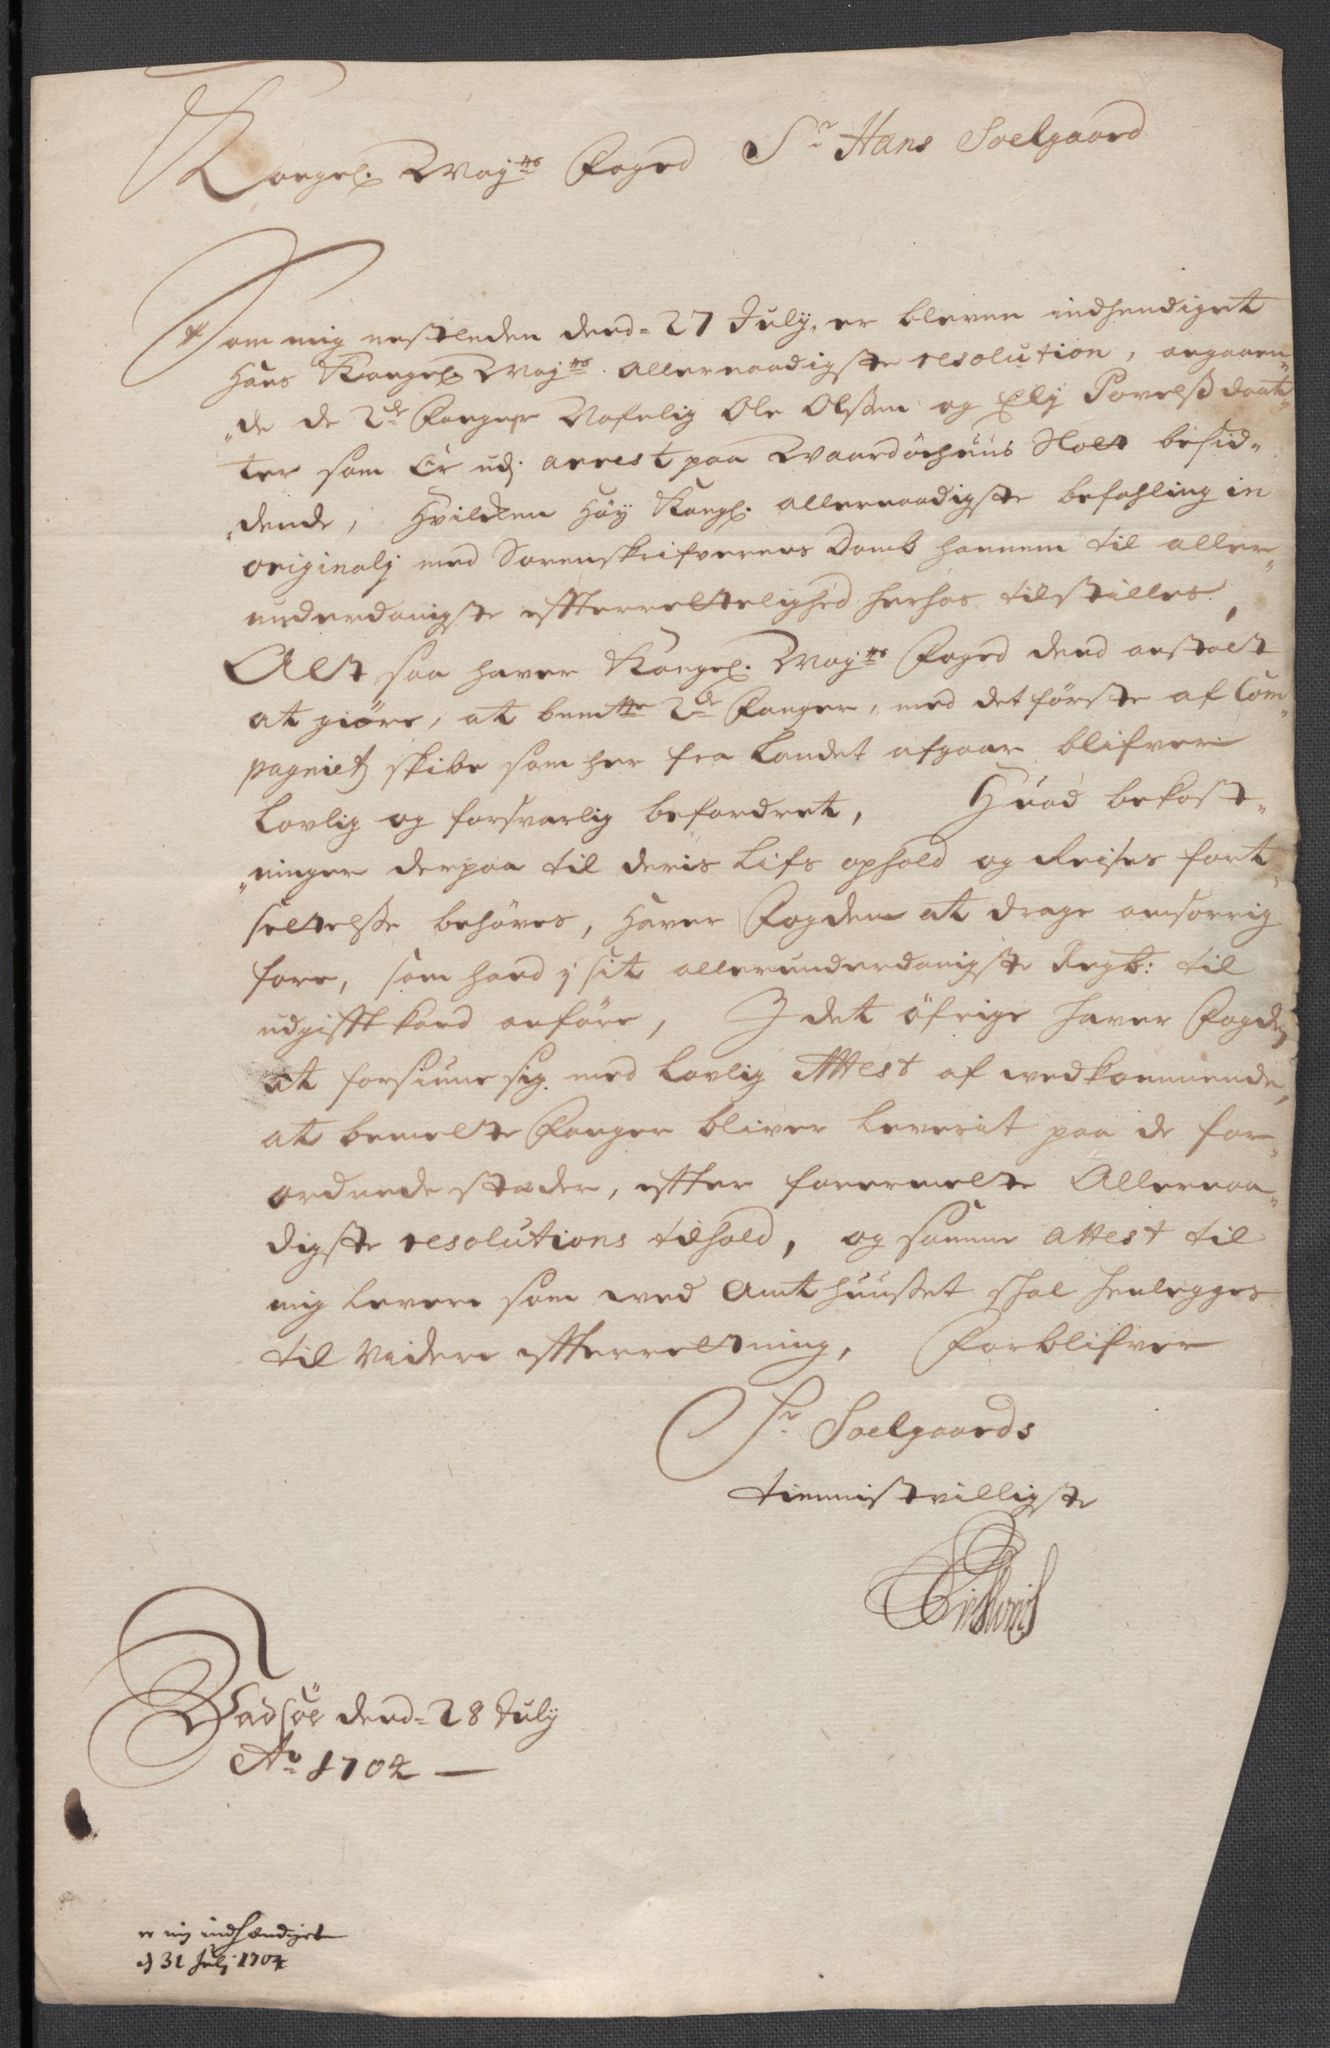 Kongel. Mayᵗˢ Foged Sʳ Hans Soelgaard
Som mig nestleden dend= 27 July, er bleven indhendiget
Hans Kongel. Mayᵗˢ allernaadigste resolution, angaaen„
„de de 2ᵈᵉ Fanger Nafnlig Ole Olssen og Ely Povelss daat„
ter som Er udj arrest paa Waardöehuus Slott besid„
„dende, Hvilcken Höy Kongl. allernaadigste befahling in
originalj med Sorenskrifverens Domb hannem til aller„
underdanigste effterrettelighed herhos tilstilles,
Alt saa haver Kongel. Mayᵗˢ Foged dend anstalt
at giöre, at bemᵗᵉ 2ᵈᵉ Fanger, med det förste af Com„
pagniet skibe som her fra Landet afgaar blifver
Lovlig og forsvarlig befordret, Huad bekost„
„ninger derpaa til deris Lifs ophold og Reises fort„
settelsse behöves, Haver Fogden at drage omsorrig
fore, som hand j sit allerunderdanigste Regb: til
udgifft kand anföre, I det öfrige haver Fogden
at forsiune sig med Lovlig Attest af vedkommende,
at bemelte Fanger bliver Leverit paa de for„
ordnede stæder, effter forermelte Allernaa„
digste resolutions tilhold, og samme attest til
mig Levere som ved Amthuusset skal henlegges
til videre effterretning, Forblifver
Sʳ Soelgaards
tiennistvilligste
Vadsöe dend= 28 July
Aᵒ 1704 —
er mig indhændiget
d 31 Julj 1704